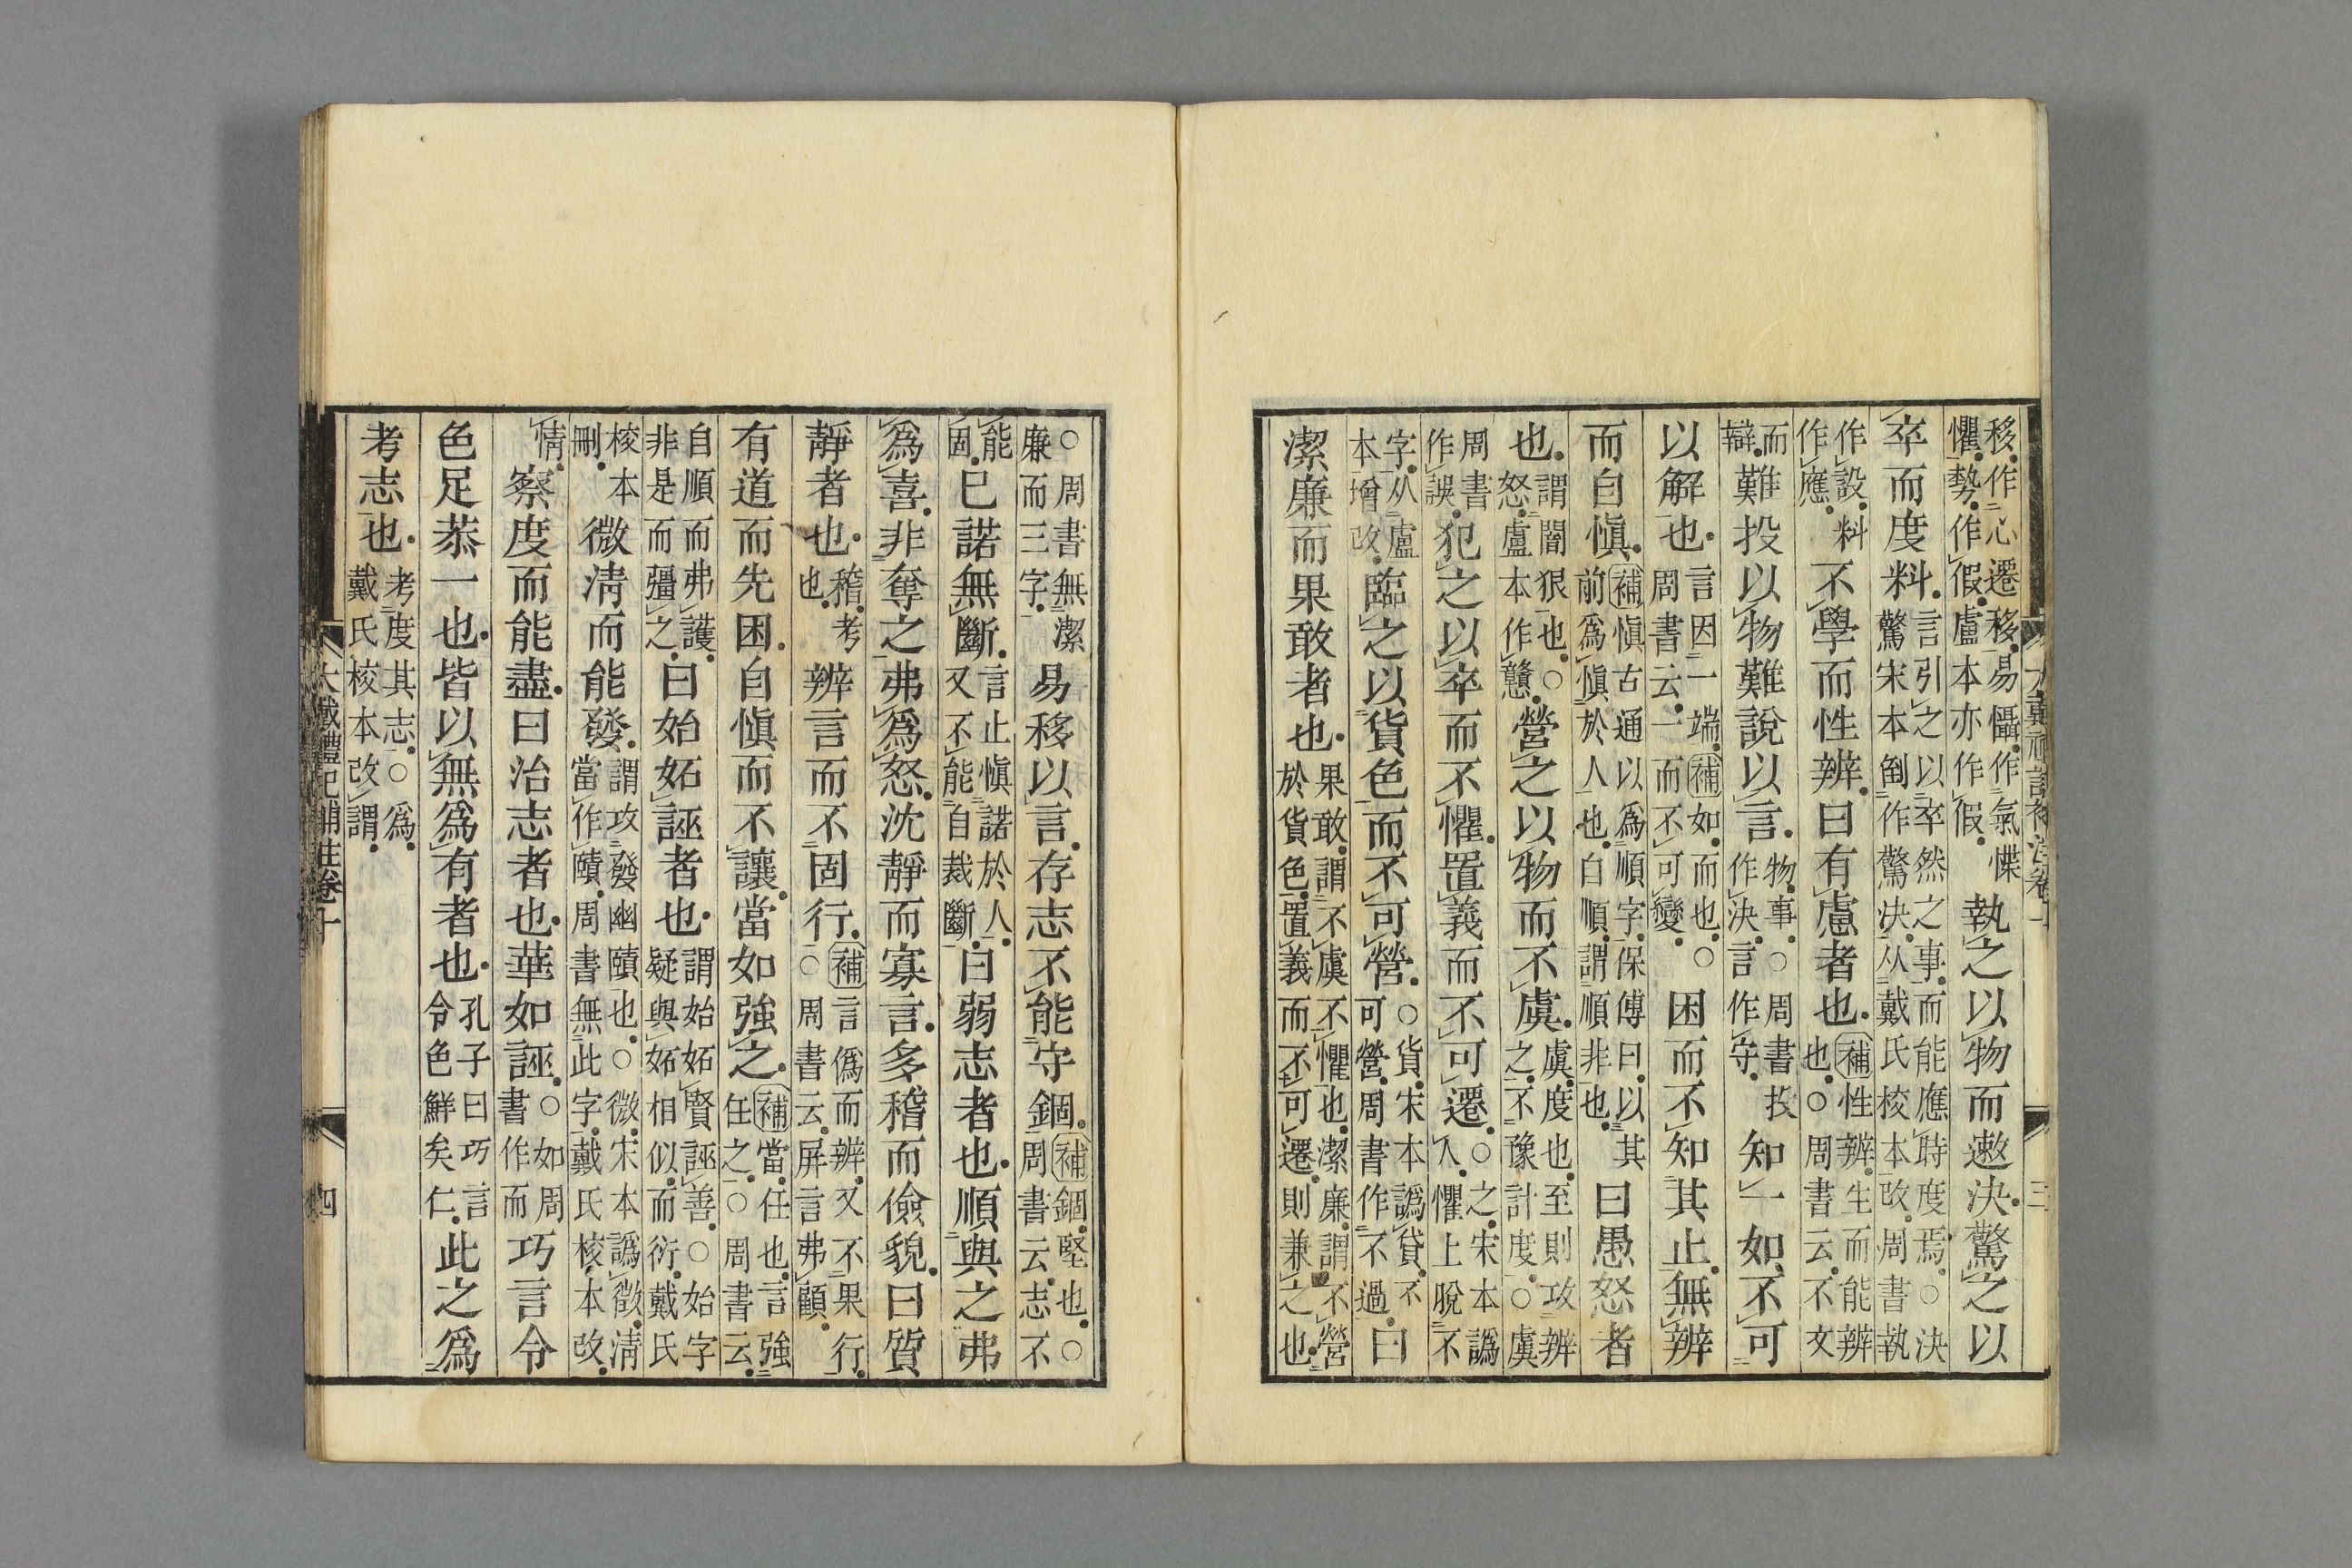 移作心遷移易懾作氣慄
懼勢作假盧本亦作假
執之以物而遫決驚之以
卒而度料
言引之以卒然之事而能應時度焉○決
驚宋本倒作驚決从戴氏校本改周書執
作設料
作應
不學而性辨曰有慮者也
補性辨生而能辨
也○周書云不文
而
辯
難投以物難說以言
物事○周書投
作決言作守
知一如不可
以解也
言因一端補如而也○
周書云一而不可變
困而不知其止無辨
而自愼
補愼古通以爲順字保傅曰以其
前爲愼於人也白順謂順非也
曰愚怒者
也
謂闇狠也○
怒盧本作戇
營之以物而不虞
虞度也至則攻辨
之不豫計度○虞
周書
作誤
犯之以卒而不懼置義而不可遷
○之宋本譌
人懼上脫不
字从盧
本增改
臨之以貨色而不可營
○貨宋本譌貸不
可營周書作不過
曰
潔廉而果敢者也
果敢謂不虞不懼也潔廉謂不營
於貨色置義而不可遷則兼之也
三
○周書無潔
廉而三字
易移以言存志不能守錮
補錮堅也○
周書云志不
能
固
已諾無斷
言止愼諾於人
又不能自裁斷
曰弱志者也順與之弗
爲喜非奪之弗爲怒沈靜而寡言多稽而儉貌曰質
靜者也
稽考
也
辨言而不固行
補言僞而辨又不果行
○周書云屏言弗顧
有道而先困自愼而不讓當如強之
補當任也言強
任之○周書云
自順而弗護
非是而彊之
曰始妬誣者也
謂始妬賢誣善○始字
疑與妬相似而衍戴氏
校本
刪
微淸而能發
謂攻發幽賾也○微宋本譌徵淸
當作賾周書無此字戴氏校本改
情
察度而能盡曰治志者也華如誣
○如周
書作而
巧言令
色足恭一也皆以無爲有者也
孔子曰巧言
令色鮮矣仁
此之爲
考志也
考度其志○爲
戴氏校本改謂
大戴禮記補註卷十
四